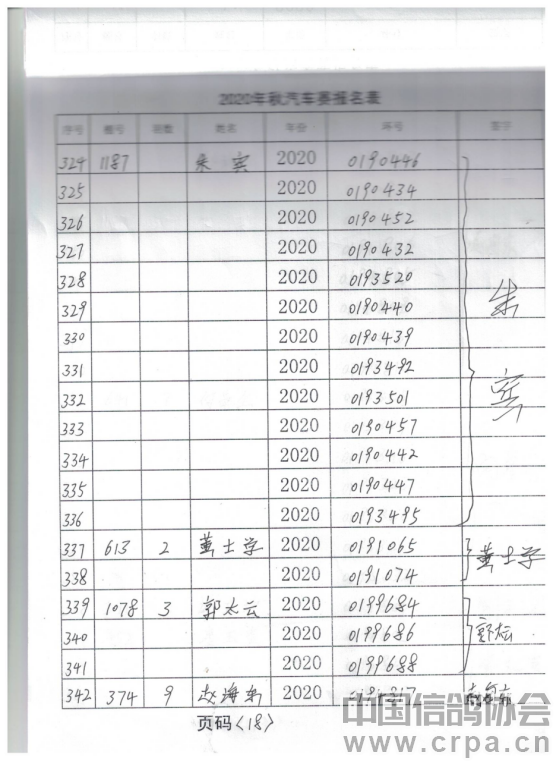 2020年秋汽车赛报名表
序号 棚号 羽数 姓名 年份 环号 签字
324 1187 朱宾 2020 0190446
325 2020 0190434
326 2020 0190452
327 2020 0190432
328 2020 0193520
329 2020 0190440
330 2020 0190439
331 2020 0193492
332 2020 0193501
333 2020 0190457
334 2020 0190442
335 2020 0190447
336 2020 0193495
朱宾
337 613 2 黄士学 2020 0191065 黄士学
338 2020 0191074
339 1078 3 郭太云 2020 0199684
340 2020 0199686
341 2020 0199688
342 374 9 2020
页码〈18〉
中国信鸽协会
www.crpa.cn